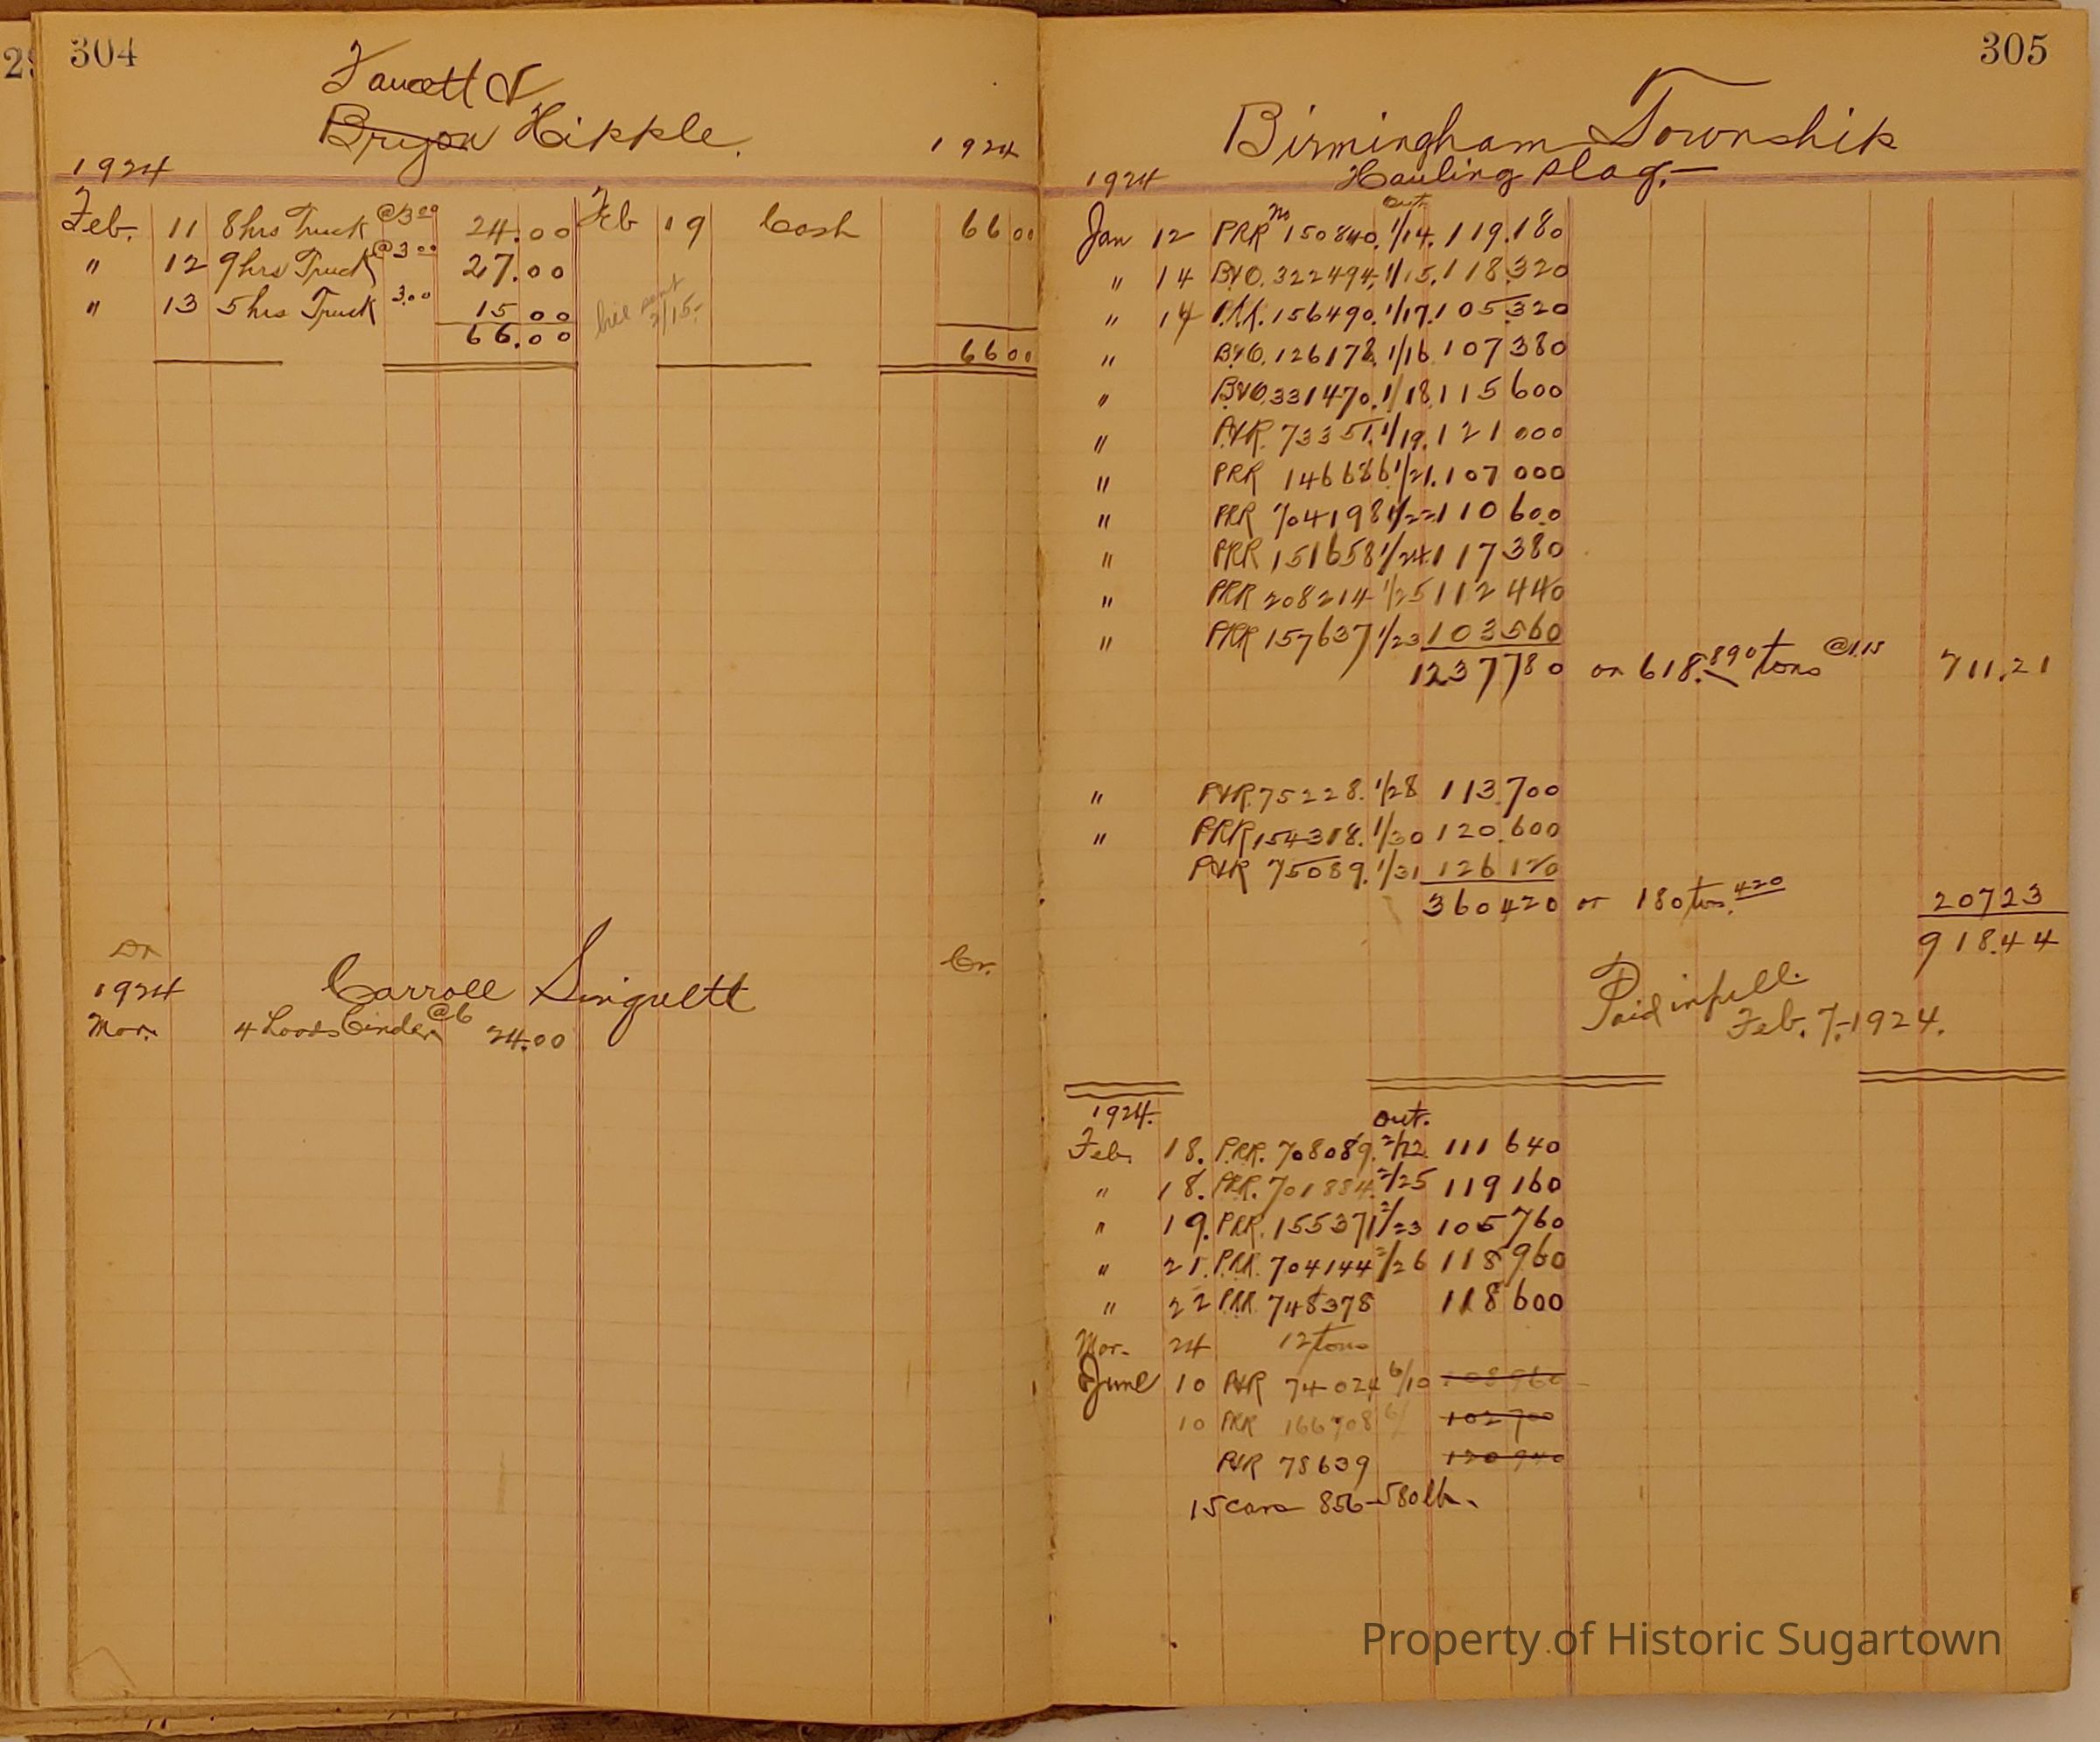 304
Faucett &
Bryan Hipple.
1924
1924
Feb. 11 8 hrs Truck @3.00 24.00 Feb 19 Cash 66 00
" 12 9 hrs Truck @3.00 27.00
" 13 5 hrs Truck 3.00 15.00 bill sent 2/15-
66.00
66 00
Dr Cr.
1924 Carroll
Mar. 4 Loads Cinder @6 24.00
305
Birmingham Township
1924 Hauling Slag.-
out
Jan 12 PRR No 150840. 1/14. 119.180
" 14 B&O. 322494. 1/15. 118.320
" 14 P.R.R. 156490. 1/17. 105.320
" B&O. 126178. 1/16 107 380
" B&O. 331470. 1/18. 115 600
" P&R. 73351. 1/19. 121 000
" PRR 146686 1/21. 107 000
" PRR 704198 1/22 110 600
" PRR 151658 1/24 117 380
" PRR 208214 1/25 112 440
" PRR 157637 1/23 103560
1237780 or 618.890 tons @1.15 711.21
" P&R. 75228. 1/28 113.700
" PRR 154318. 1/30 120.600
P&R 75089. 1/31 126 120
360420 or 180 tons. 420 20723
918.44
Paid in full
Feb. 7-1924.
1924. out.
Feb. 18. P.RR. 708089. 2/22. 111 640
" 18. P.RR. 701884. 2/25 119 160
" 19. PRR. 155371 2/23 105 760
" 21. P.RR. 704144 2/26 118 960
" 22 P.RR. 748378 118 600
Mar. 24 12 tons
June 10 P&R 74024 6/10 108960
10 PRR 166708 6/ 102700
P&R 78639 120 940
15 cars 856-580 lb.
Property of Historic Sugartown